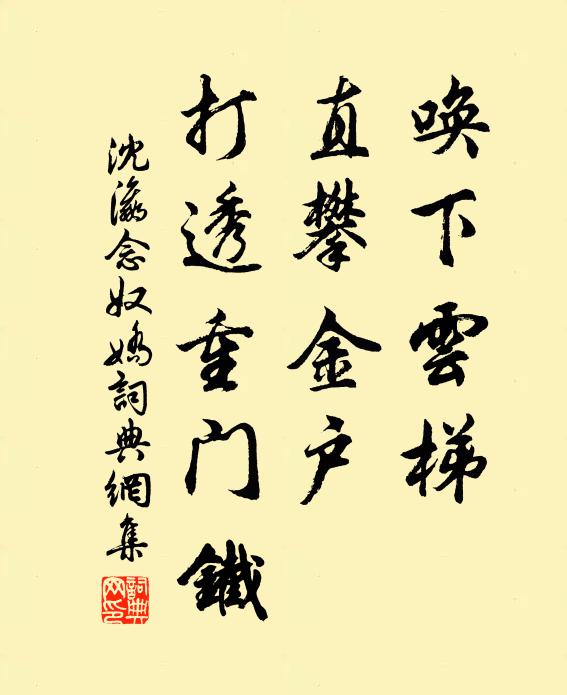 唤下雲梯
直攀金户
打透重门鐵
沈瀛念奴嬌詞典網集
詞典网印